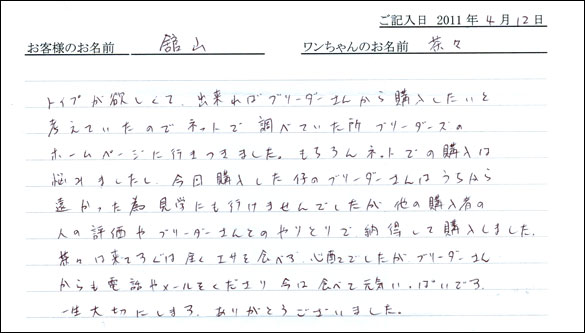 ご記入日 2011年4月12日
お客様のお名前 舘山 ワンちゃんのお名前 茶々
トイプが欲しくて、出来ればブリーダーさんから購入したいと
考えていたのでネットで調べていた所 ブリーダーズの
ホームページに行きつきました。もちろんネットでの購入は
悩みましたし、今回購入した仔のブリーダーさんはうちから
遠かった為 見学にも行けませんでしたが 他の購入者の
人の評価やブリーダーさんとのやりとりで納得して購入しました。
茶々は来てすぐは全くエサを食べず、心配でしたがブリーダーさん
からも電話やメールをくださり 今は食べて元気いっぱいです。
一生大切にします。ありがとうございました。